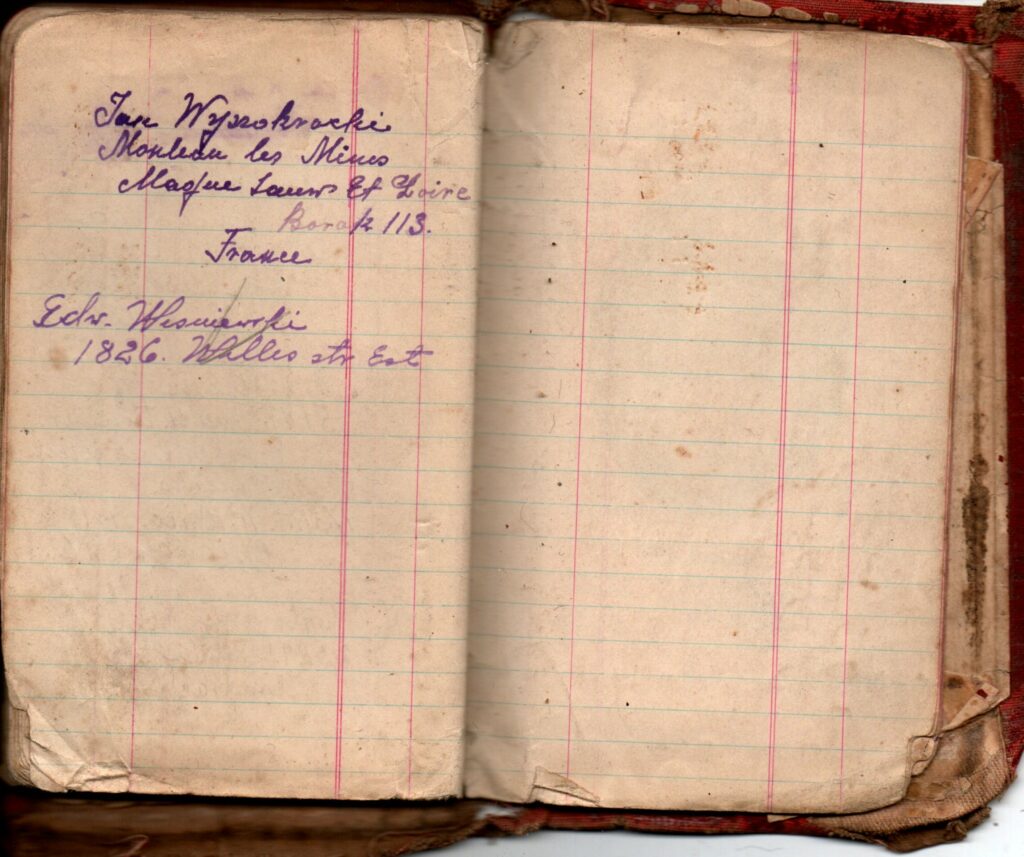 Jan Wyzokrocki
Monleau les Mines
Magne Et Loire
Borak 113.
France
Edw. Wisniewski
1826. Willis str Est